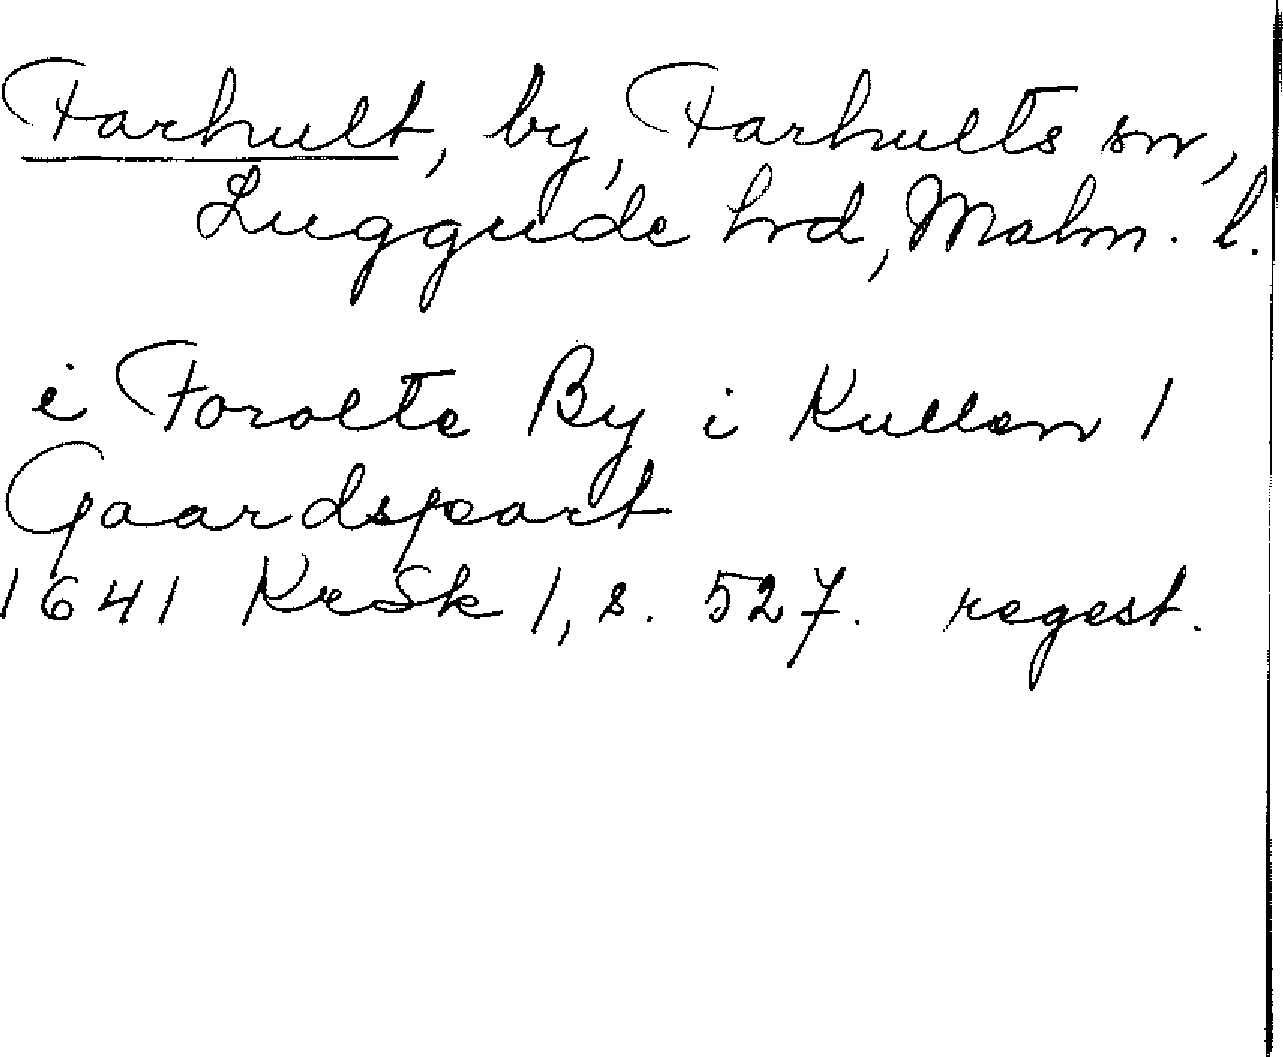 Farhult, by, Farhults sn,
Luggude hrd, Malm. l.
i Forolte By i Kullen 1
Gaardspart
1641 KrSk 1, s. 527. regest.